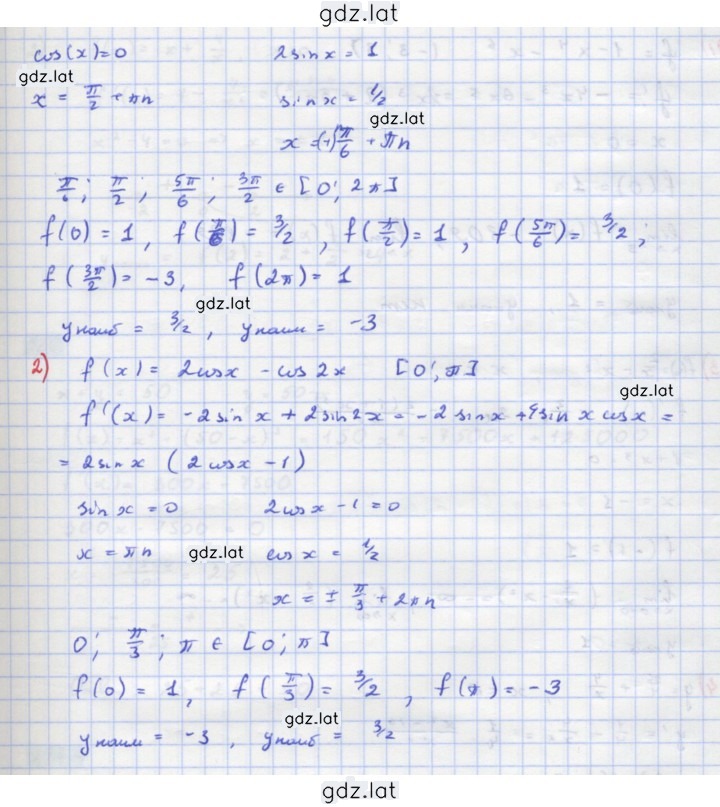 gdz.lat
cos(x)=0 2sinx = 1
gdz.lat
x = π/2 + πn sinx = 1/2
gdz.lat
x = (-1)ⁿ π/6 + πn
π/6; π/2; 5π/6; 3π/2 ∈ [0; 2π]
f(0) = 1, f(π/6) = 3/2, f(π/2) = 1, f(5π/6) = 3/2,
f(3π/2) = -3, f(2π) = 1
gdz.lat
yнаиб = 3/2, yнаим = -3
2) f(x) = 2cosx - cos2x [0; π]
gdz.lat
f'(x) = -2sin x + 2sin2x = -2sinx + 4sin x cosx =
= 2sinx (2cosx - 1)
sinx = 0 2cosx - 1 = 0
x = πn gdz.lat cosx = 1/2
x = ± π/3 + 2πn
0; π/3; π ∈ [0; π]
f(0) = 1, f(π/3) = 3/2, f(π) = -3
gdz.lat
yнаим = -3, yнаиб = 3/2
gdz.lat